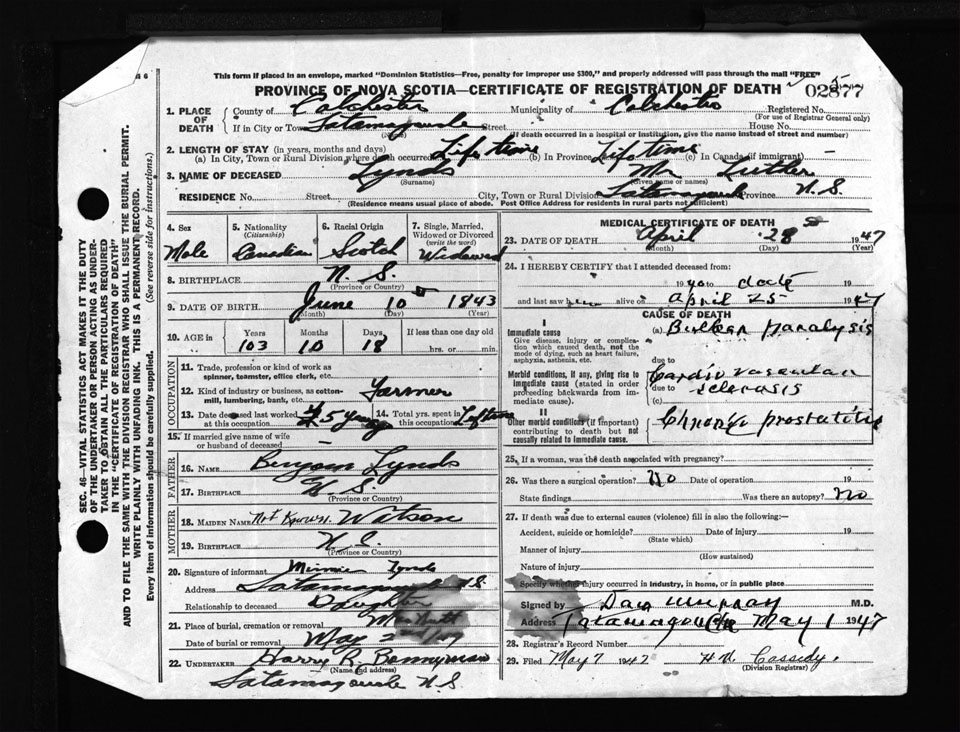 This form if placed in an envelope, marked "Dominion Statistics—Free, penalty for improper use $300," and properly addressed will pass through the mail "FREE"
PROVINCE OF NOVA SCOTIA—CERTIFICATE OF REGISTRATION OF DEATH 02877
1. PLACE OF DEATH County of Colchester Municipality of Colchester Registered No.
(For use of Registrar General only)
If in City or Town Street House No.
(If death occurred in a hospital or institution, give the name instead of street and number)
2. LENGTH OF STAY (in years, months and days)
(a) In City, Town or Rural Division where death occurred Life time (b) In Province Life time (c) In Canada (if immigrant)
3. NAME OF DECEASED Lynds Luther
(Surname) (Given name or names)
RESIDENCE No. Street City, Town or Rural Division Province N.S.
(Residence means usual place of abode. Post Office Address for residents in rural parts not sufficient)
4. Sex Male
5. Nationality (Citizenship) Canadian
6. Racial Origin Scotch
7. Single, Married, Widowed or Divorced (write the word) Widowed
8. BIRTHPLACE N.S.
(Province or Country)
9. DATE OF BIRTH June 10 1843
(Month) (Day) (Year)
10. AGE in Years 103 Months 10 Days 18 If less than one day old hrs. or min.
OCCUPATION
11. Trade, profession or kind of work as spinner, teamster, office clerk, etc.
12. Kind of industry or business, as cotton-mill, lumbering, bank, etc. Farmer
13. Date deceased last worked at this occupation 14. Total yrs. spent in this occupation
15. If married give name of wife or husband of deceased
FATHER
16. NAME Lynds
17. BIRTHPLACE N.S.
(Province or Country)
MOTHER
18. MAIDEN NAME Not Known Watson
19. BIRTHPLACE
(Province or Country)
20. Signature of informant Minnie Lynds
Address N.S.
Relationship to deceased Daughter
21. Place of burial, cremation or removal
Date of burial or removal May 2
22. UNDERTAKER Harry R. Bonnyman
(Name and address)
N.S.
MEDICAL CERTIFICATE OF DEATH
23. DATE OF DEATH April 28 1947
(Month) (Day) (Year)
24. I HEREBY CERTIFY that I attended deceased from:
1940 to date 19
and last saw him alive on April 25 1947
CAUSE OF DEATH
I
Immediate cause
Give disease, injury or complication which caused death, not the mode of dying, such as heart failure, asphyxia, asthenia, etc.
(a) Bulbar Paralysis
due to
Morbid conditions, if any, giving rise to immediate cause (stated in order proceeding backwards from immediate cause).
Cardio vascular
due to sclerosis
(c)
II
Other morbid conditions (if important) contributing to death but not causally related to immediate cause.
Chronic prostatitis
25. If a woman, was the death associated with pregnancy?
26. Was there a surgical operation? No Date of operation 19
State findings Was there an autopsy? No
27. If death was due to external causes (violence) fill in also the following:—
Accident, suicide or homicide? Date of injury 19
(State which)
Manner of injury
(How sustained)
Nature of injury
Specify whether injury occurred in industry, in home, or in public place
Signed by Dan Murray M.D.
Address Tatamagouche May 1 1947
28. Registrar's Record Number
29. Filed May 7 1947 Cassidy.
(Division Registrar)
SEC. 46—VITAL STATISTICS ACT MAKES IT THE DUTY
OF THE UNDERTAKER OR PERSON ACTING AS UNDERTAKER TO OBTAIN ALL THE PARTICULARS REQUIRED
IN THE "CERTIFICATE OF REGISTRATION OF DEATH"
AND TO FILE THE SAME WITH THE DIVISION REGISTRAR WHO SHALL ISSUE THE BURIAL PERMIT.
WRITE PLAINLY WITH UNFADING INK. THIS IS A PERMANENT RECORD.
Every item of information should be carefully supplied. (See reverse side for instructions.)